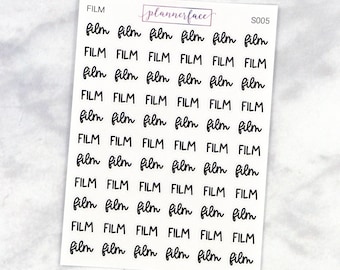 FILM plannerface S005
film film film film film film
FILM FILM FILM FILM FILM FILM
film film film film film film
FILM FILM FILM FILM FILM FILM
film film film film film film
FILM FILM FILM FILM FILM FILM
film film film film film film
FILM FILM FILM FILM FILM FILM
film film film film film film
FILM FILM FILM FILM FILM FILM
film film film film film film